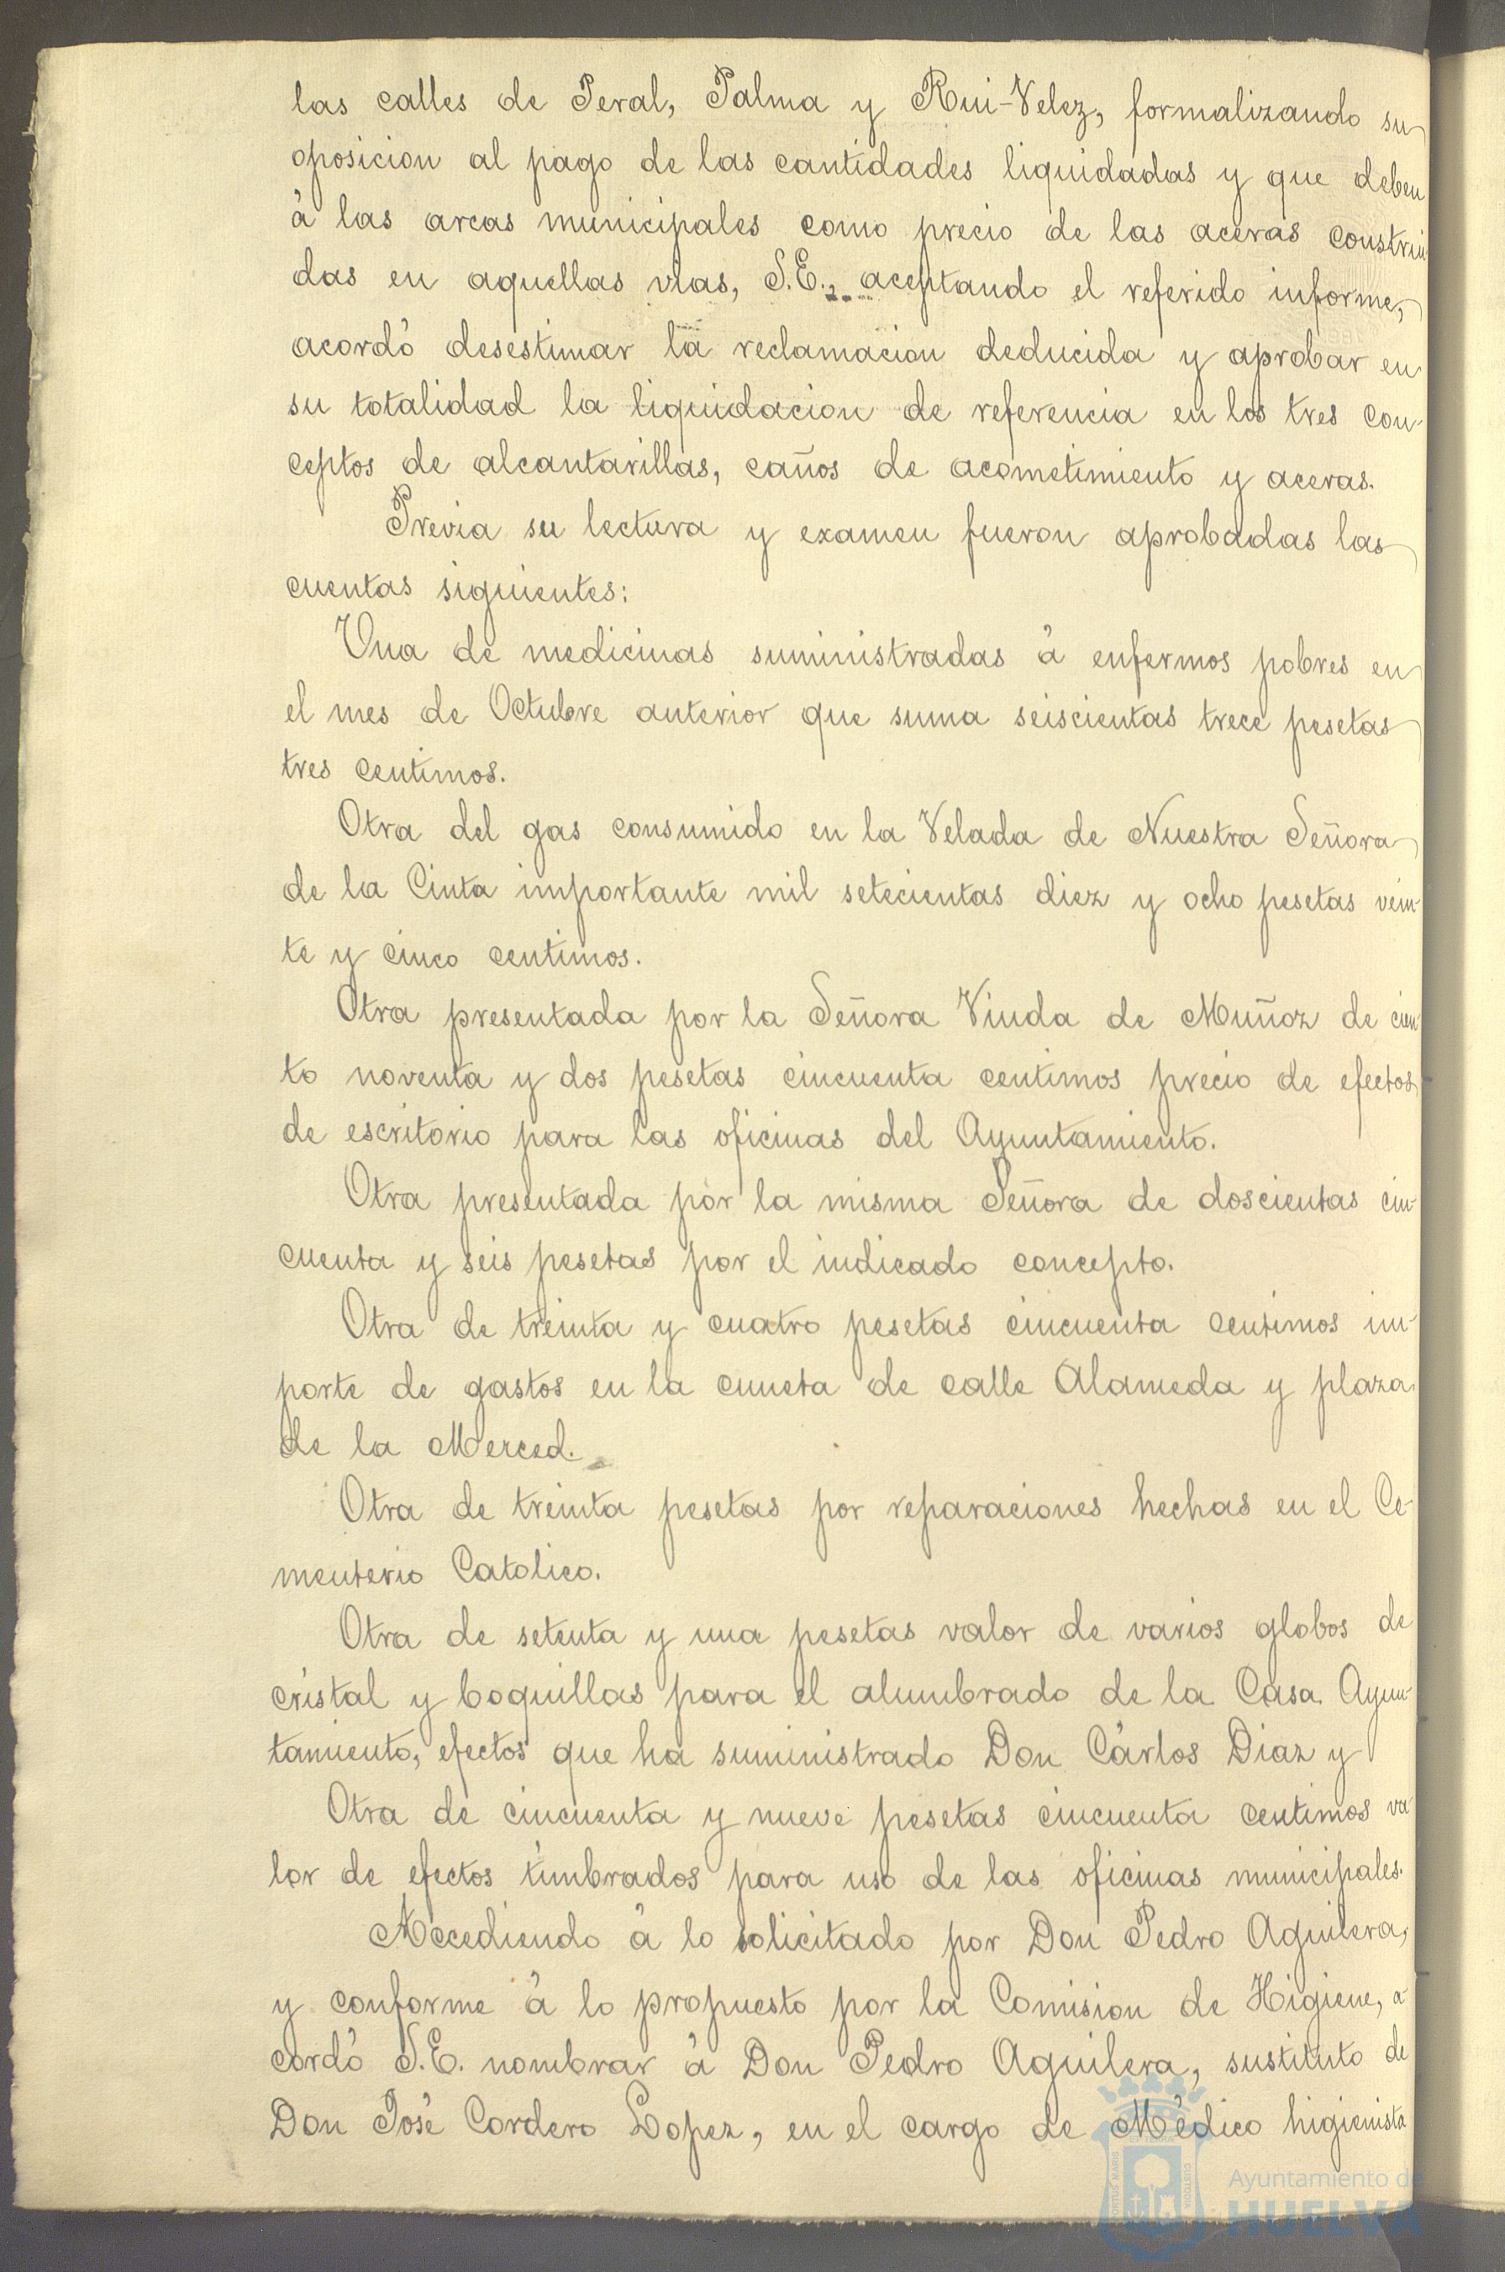 las calles de Peral, Palma y Rui-Velez, formalizando su
oposicion al pago de las cantidades liquidadas y que deben
á las arcas municipales como precio de las aceras construi-
das en aquellas vias, S.E., aceptando el referido informe,
acordó desestimar la reclamacion deducida y aprobar en
su totalidad la liquidacion de referencia en los tres con-
ceptos de alcantarillas, caños de acometimiento y aceras.
Previa su lectura y examen fueron aprobadas las
cuentas siguientes:
Una de medicinas suministradas á enfermos pobres en
el mes de Octubre anterior que suma seiscientas trece pesetas
tres centimos.
Otra del gas consumido en la Velada de Nuestra Señora
de la Cinta importante mil setecientas diez y ocho pesetas vein-
te y cinco centimos.
Otra presentada por la Señora Viuda de Muñoz de cien-
to noventa y dos pesetas cincuenta centimos precio de efectos
de escritorio para las oficinas del Ayuntamiento.
Otra presentada por la misma Señora de doscientas cin-
cuenta y seis pesetas por el indicado concepto.
Otra de treinta y cuatro pesetas cincuenta centimos im-
porte de gastos en la cuneta de calle Alameda y plaza
de la Merced.
Otra de treinta pesetas por reparaciones hechas en el Ce-
menterio Catolico.
Otra de setenta y una pesetas valor de varios globos de
cristal y boquillas para el alumbrado de la Casa Ayun-
tamiento, efectos que ha suministrado Don Cárlos Diaz y
Otra de cincuenta y nueve pesetas cincuenta centimos va-
lor de efectos timbrados para uso de las oficinas municipales.
Accediendo á lo solicitado por Don Pedro Aguilera,
y conforme á lo propuesto por la Comision de Higiene, a-
cordó S.E. nombrar á Don Pedro Aguilera, sustituto de
Don José Cordero Lopez, en el cargo de Médico higienista
Ayuntamiento de
HUELVA